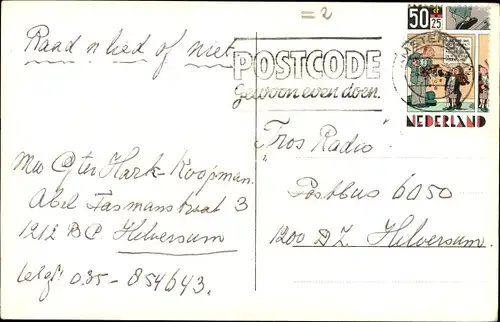 = 2
Raad n lied of niet
POSTCODE
gewoon even doen.
50
25
NEDERLAND
"Tros Radio"
Postbus 6050
1200 D Z. Hilversum.
Mw Gter Hark-Koopman.
Abel Tasmanstraat 3
1212 B P. Hilversum
telgf: 035-854643.